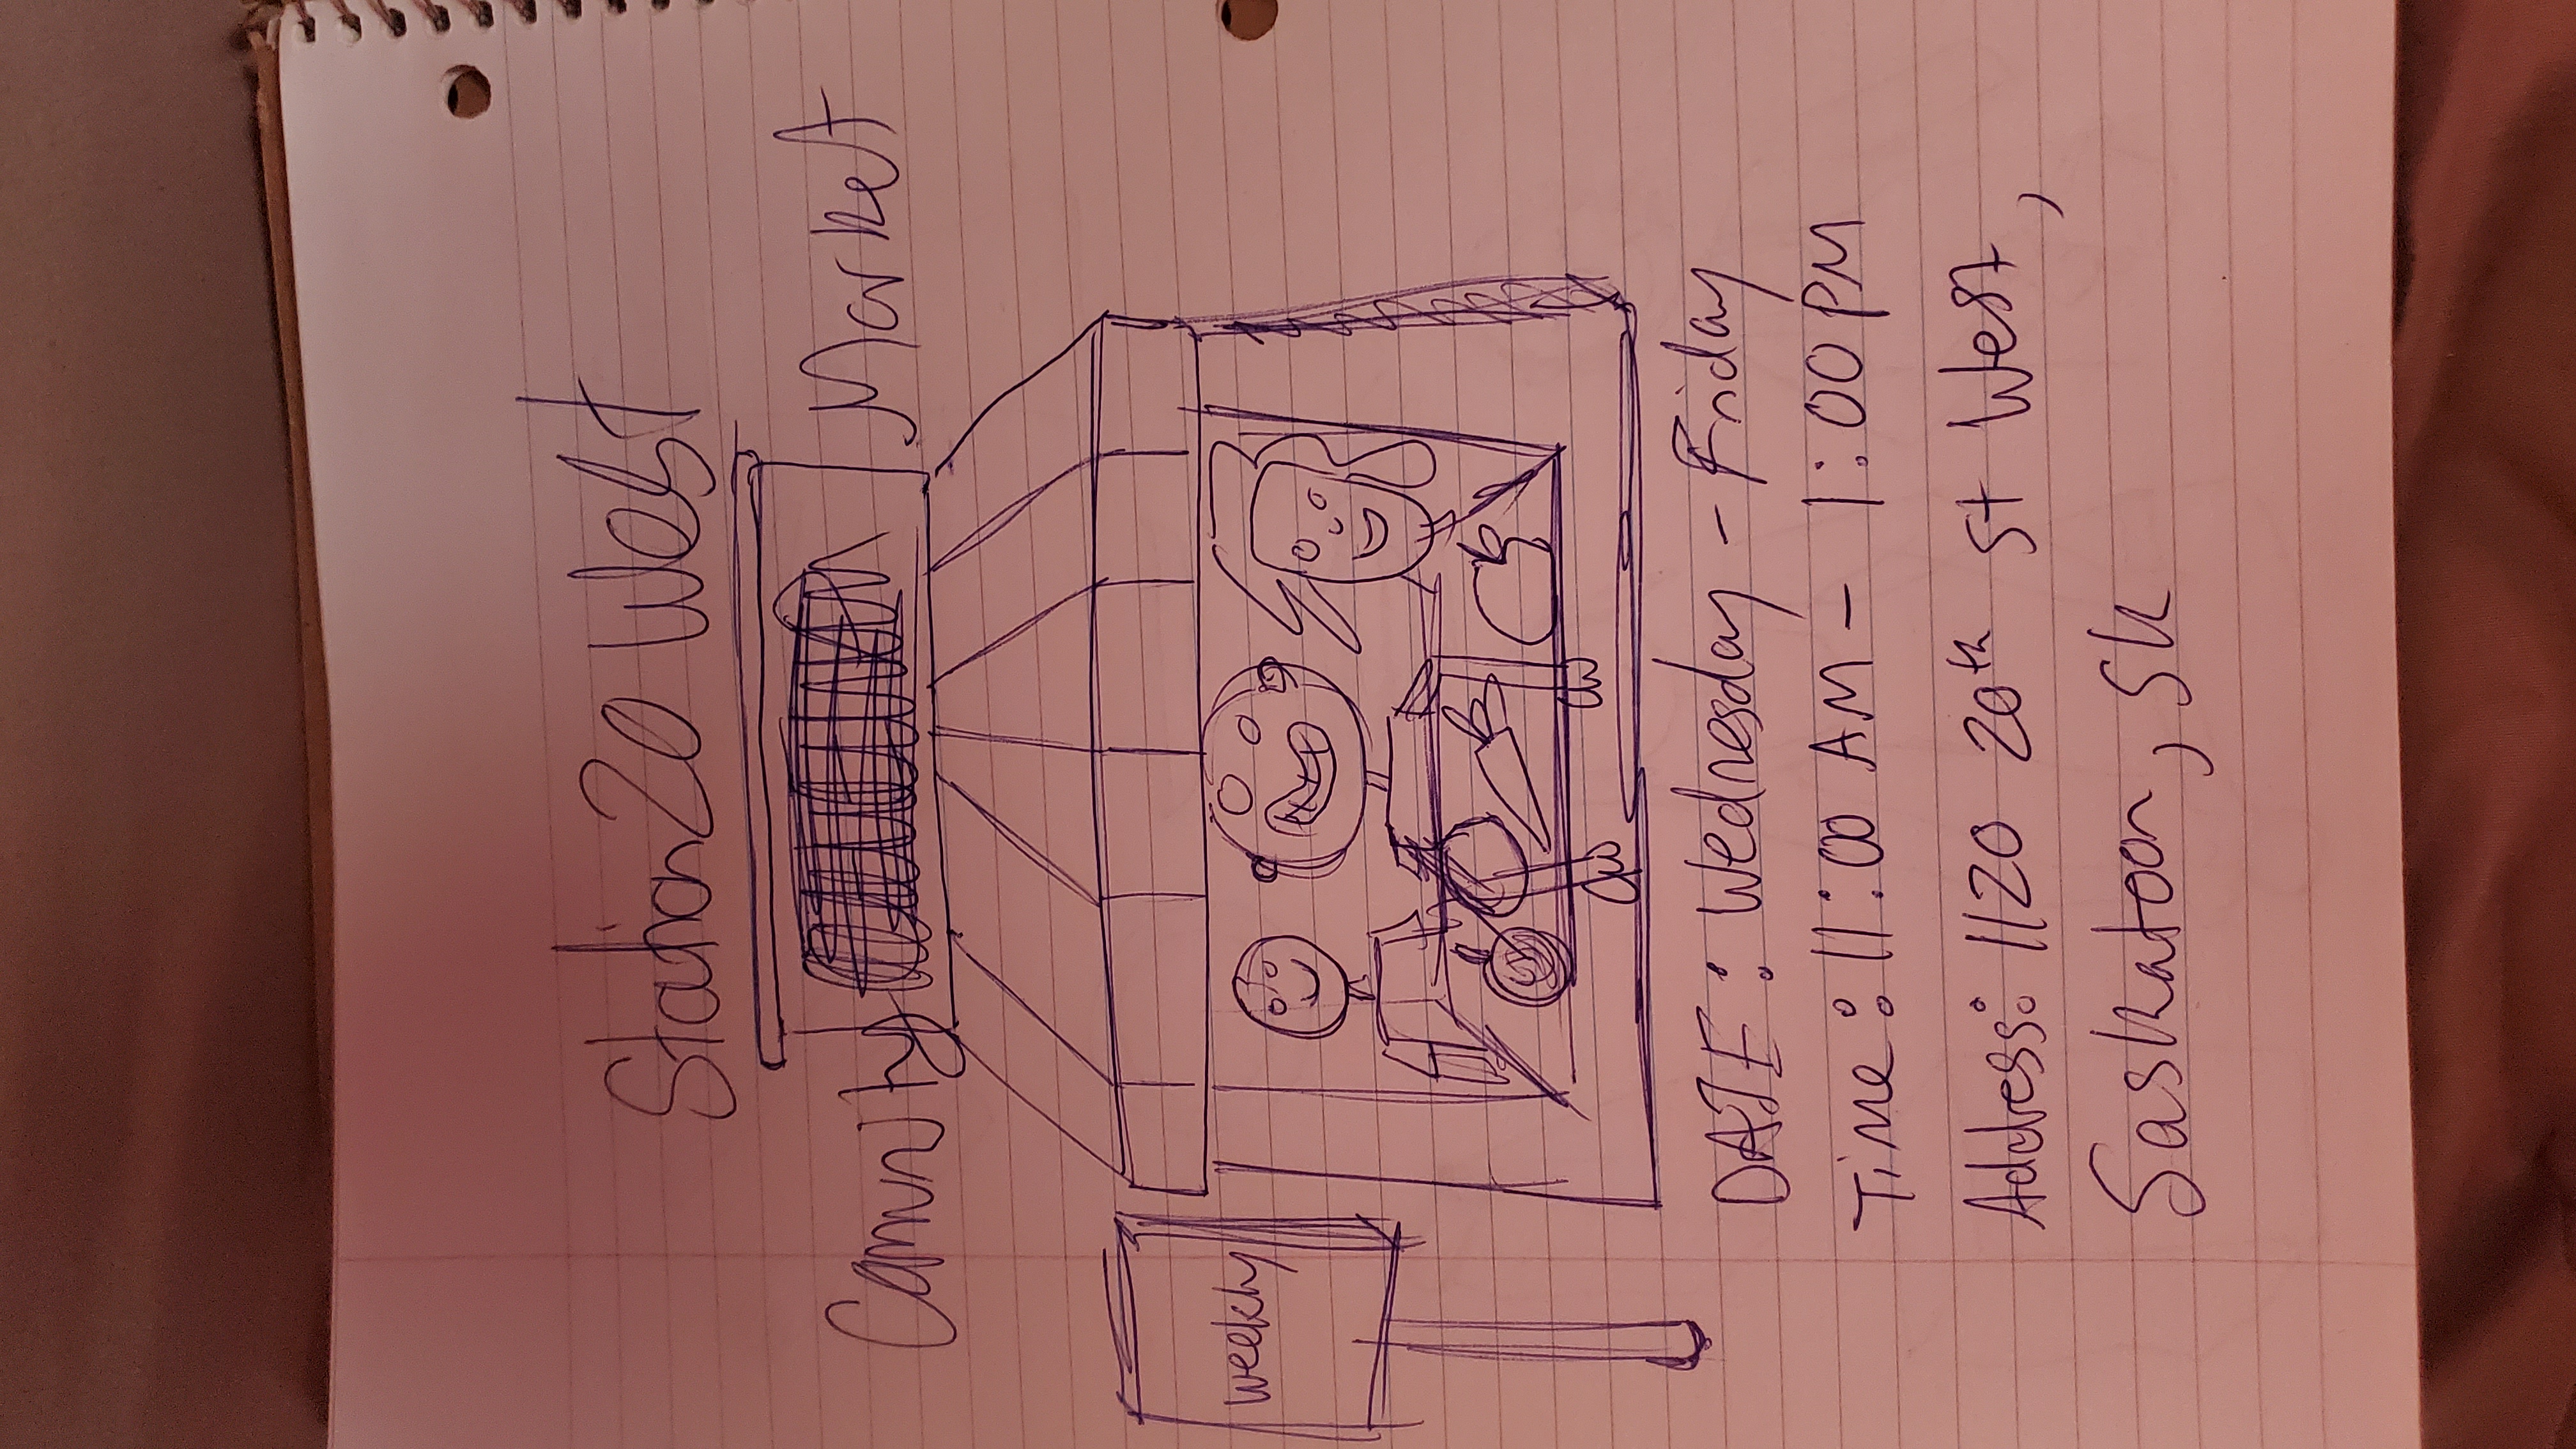 Station 20 West
Camunity Market
Weekly
DATE: Wednesday - Friday
Time: 11:00 AM - 1:00 PM
Address: 1120 20th St West,
Saskatoon, SK